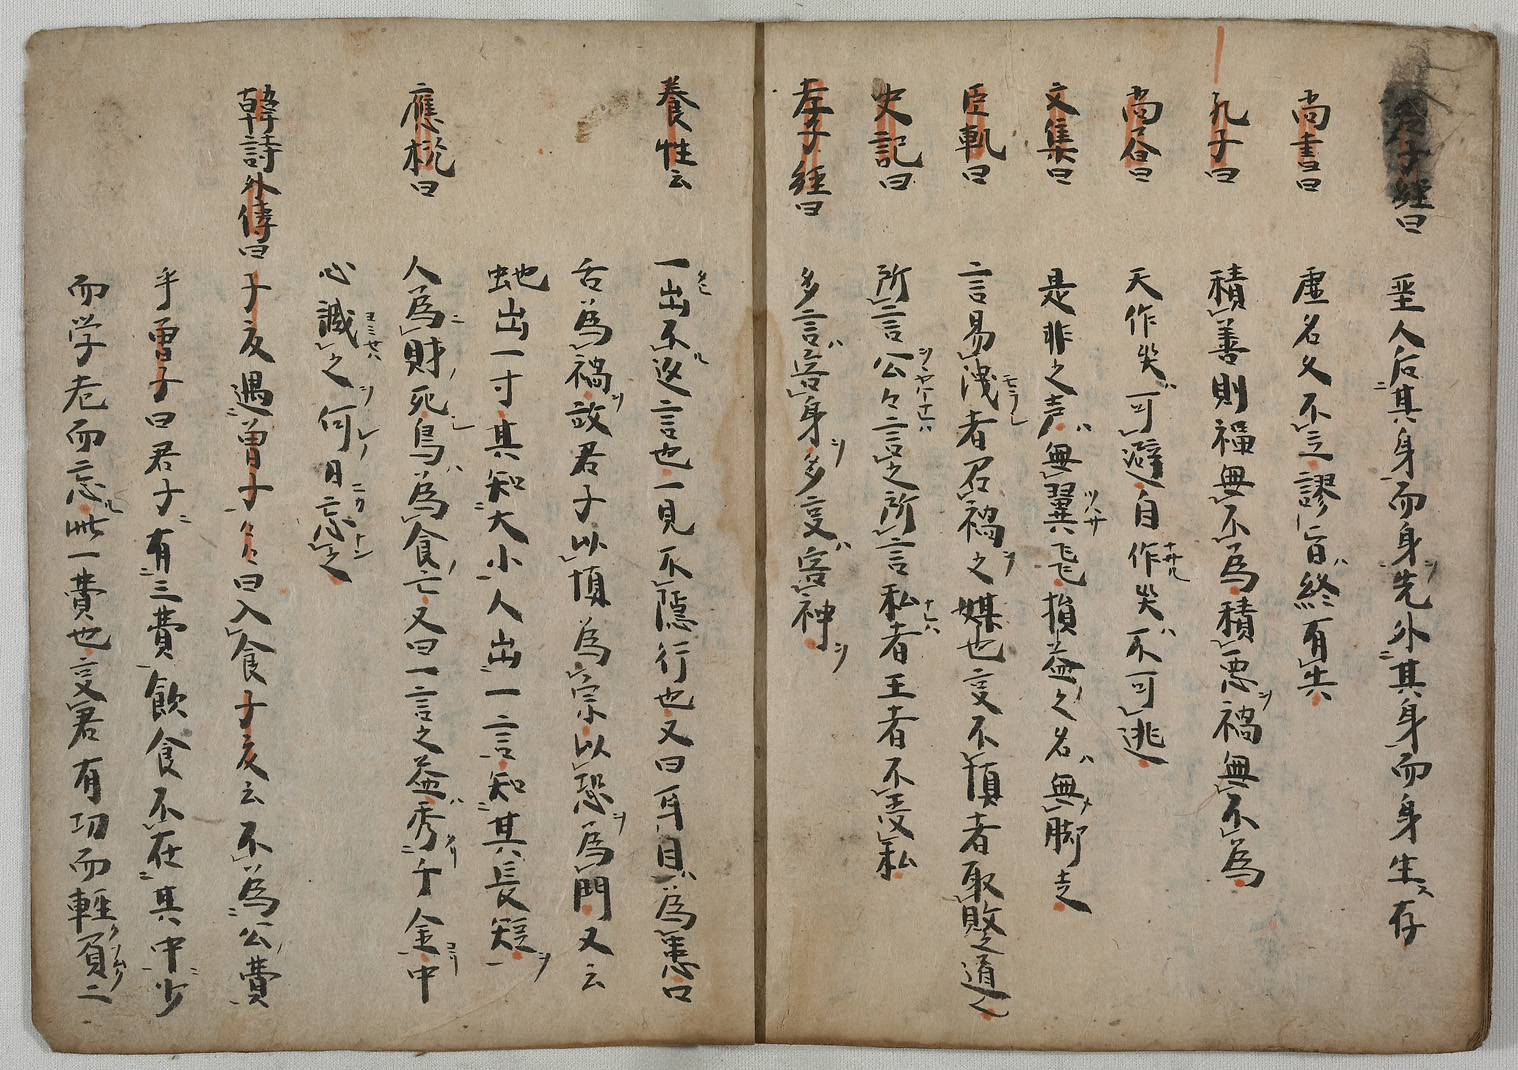 老子經曰 聖人后其身而身先外其身而身生存
尚書曰 虚名久不立謬旨終有失
孔子曰 積善則福無不為積悪禍無不為
尚合曰 天作災可避自作災不可逃
文集曰 是非之声無翼飞損益之名無脚走
臣軌曰 言易洩者召禍之媒也叓不慎者取敗之道也
史記曰 所言公々言之所言私者王者不受私
孝子經曰 多言害身多叓害神
養性云 一出不返言也一見不隠行也又曰耳目為患口
舌為禍故君子以慎為宗以恐為門又云
虵出一寸其知大小人出一言知其長短
應機曰 人為財死鳥為食亡又曰一言之益秀千金中
心誡之何日忘之
韓詩外傳曰 子友遇曽子々々曰入食子友云不為公費
乎曽子曰君子有三費飲食不在其中少
而学老而忘此一費也叓君有功而軽負二